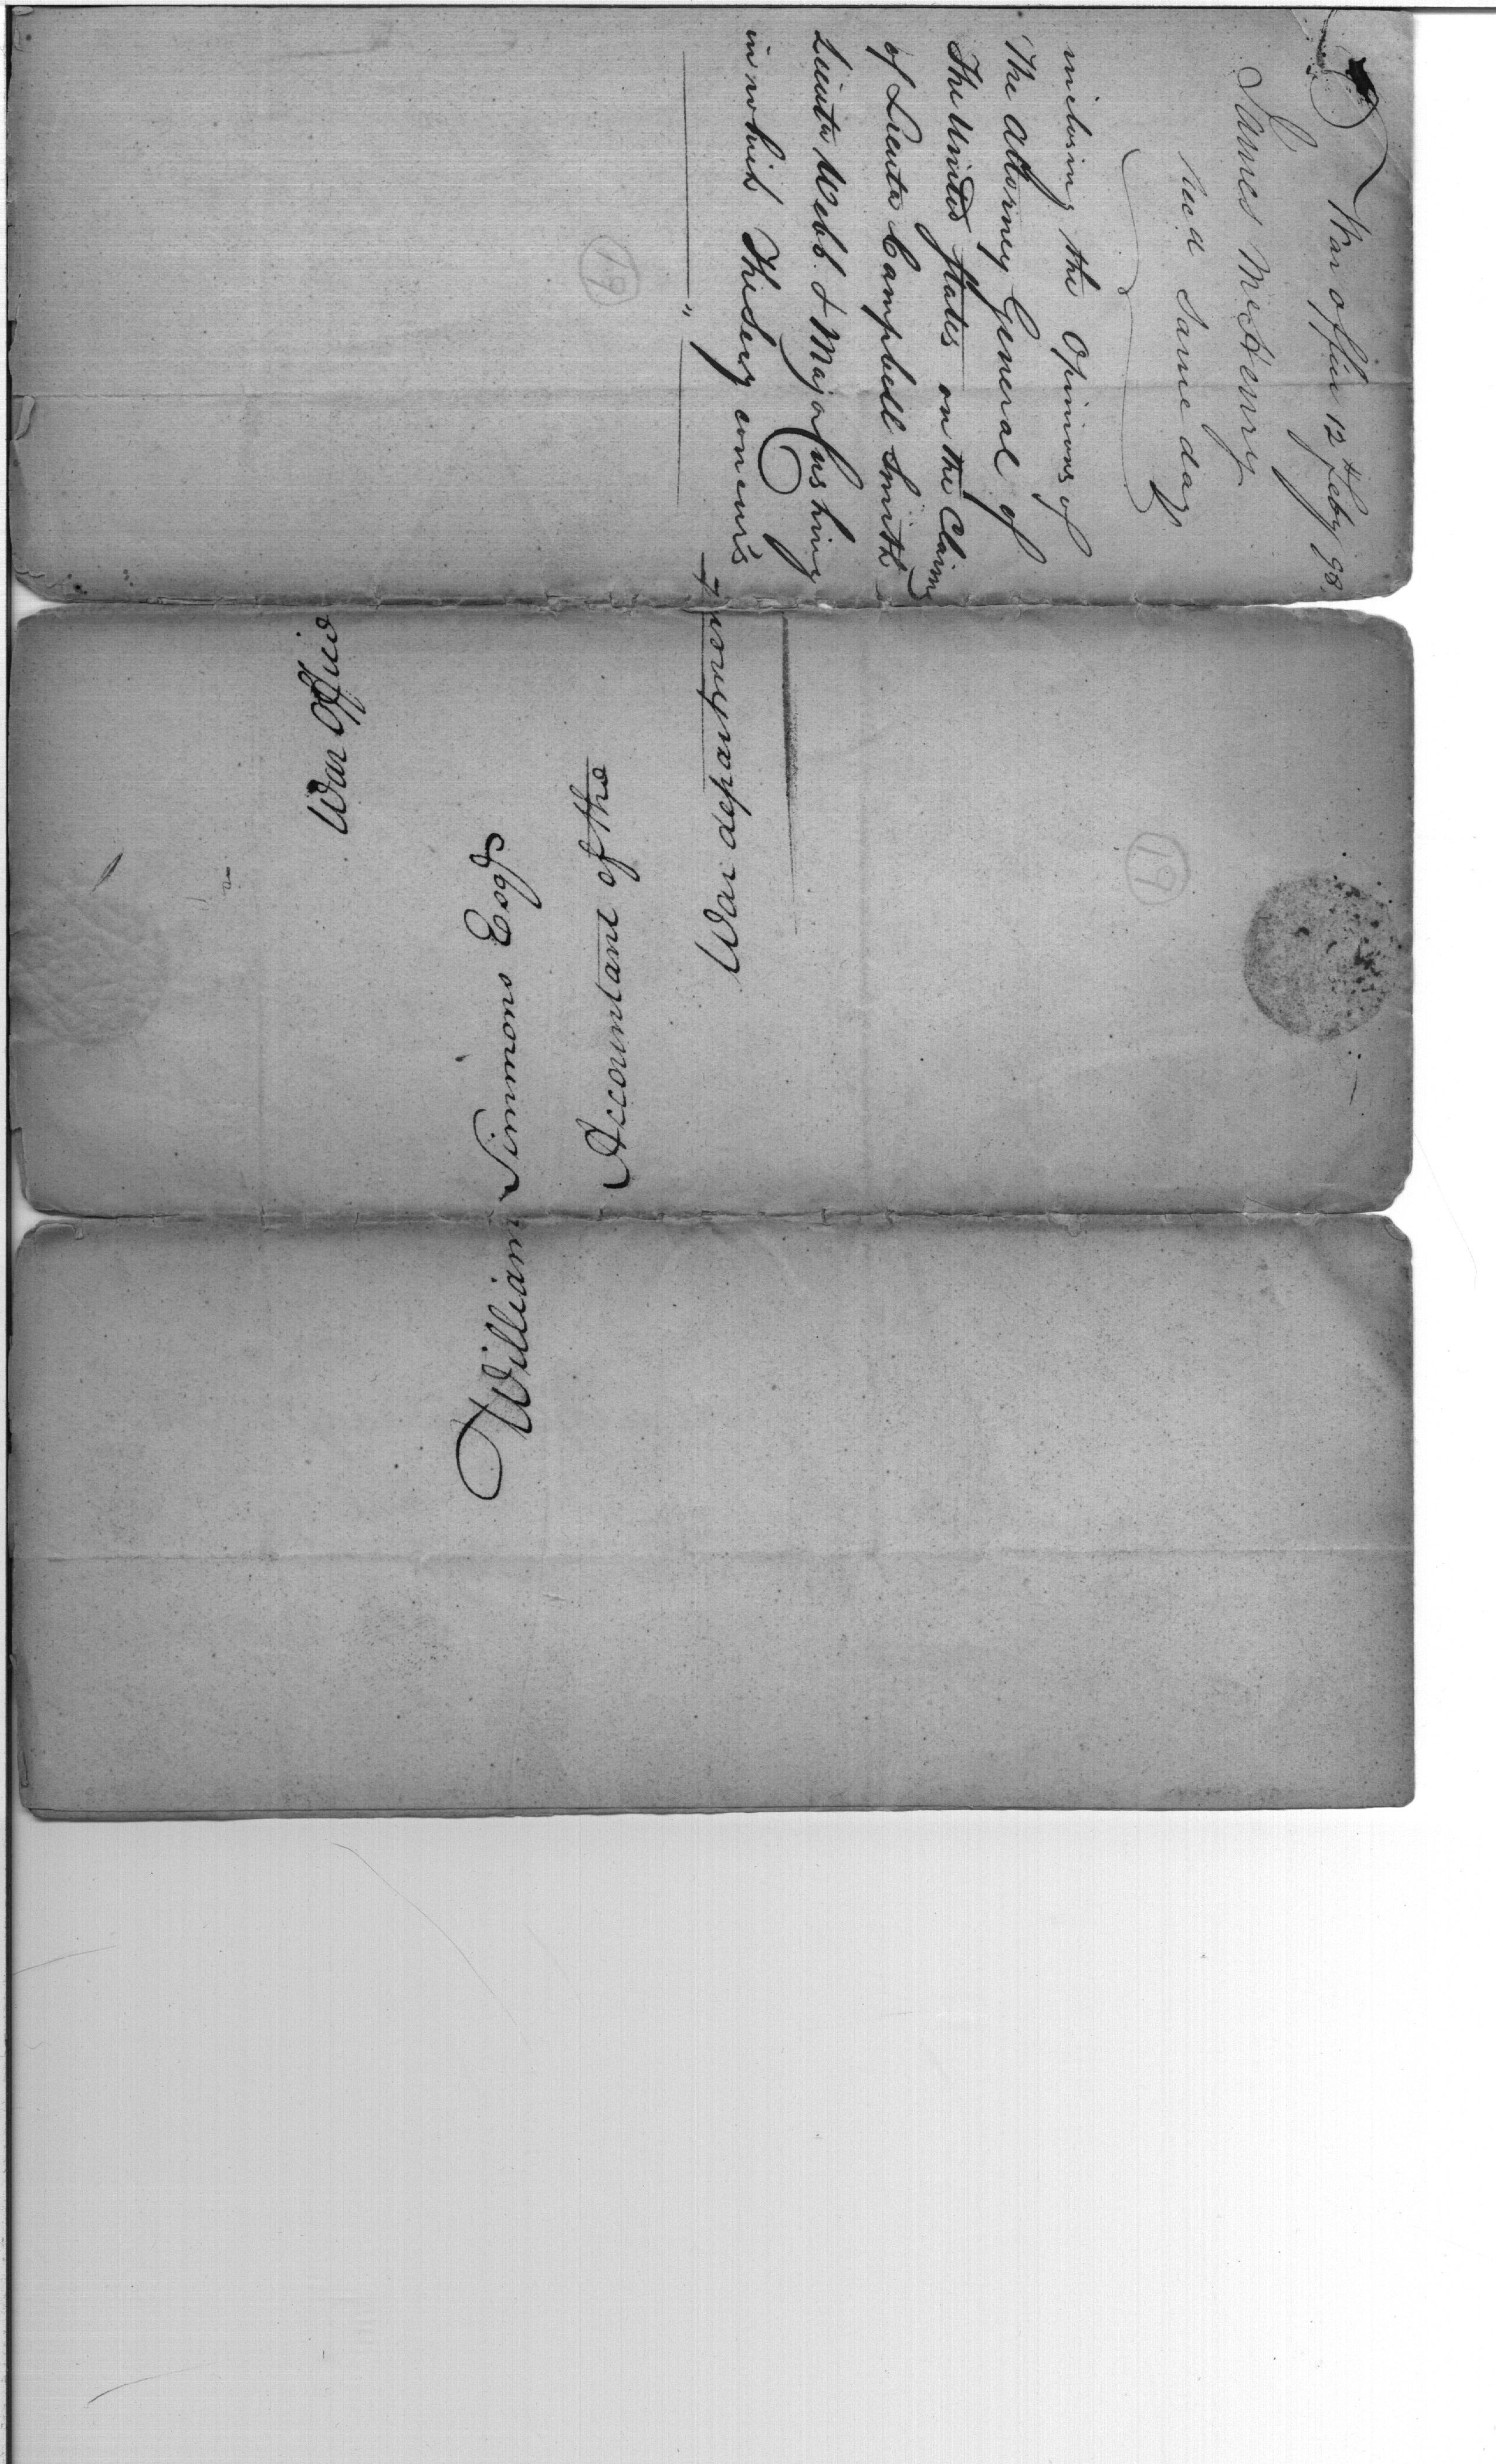 War office 12th Feby 98.
James McHenry
Recd Same day
inclosing the Opinions of
The Attorney General of
The United States on the Claims
of Lieuts Campbell Smith
Lieuts Webb & Major Cushing
in which The Secy concurs
19
War Office
William Simmons Esqr
Accountant of the
War department
19